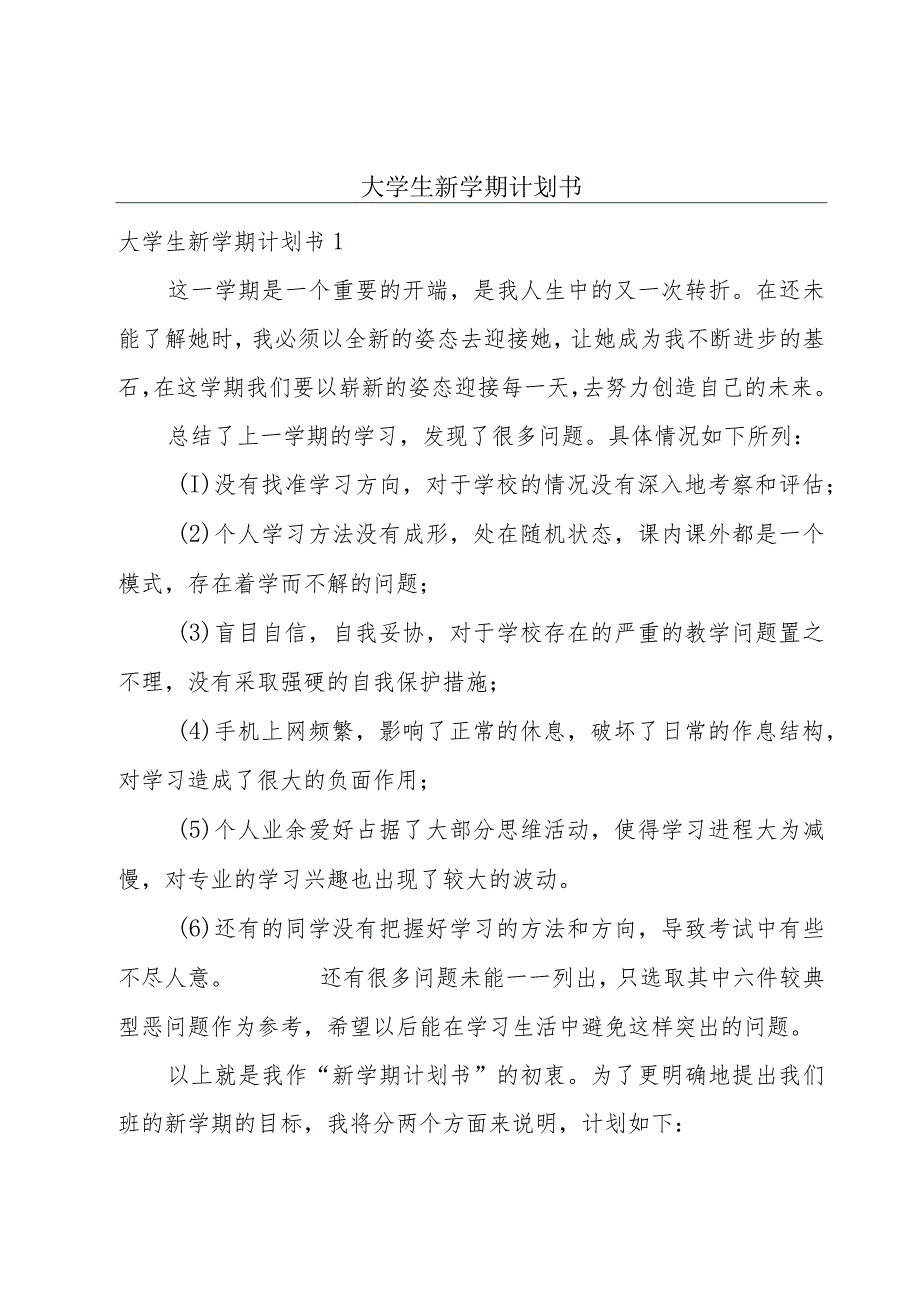 大学生新学期计划书
大学生新学期计划书1
这一学期是一个重要的开端，是我人生中的又一次转折。在还未
能了解她时，我必须以全新的姿态去迎接她，让她成为我不断进步的基
石，在这学期我们要以崭新的姿态迎接每一天，去努力创造自己的未来。
总结了上一学期的学习，发现了很多问题。具体情况如下所列：
(I)没有找准学习方向，对于学校的情况没有深入地考察和评估；
(2)个人学习方法没有成形，处在随机状态，课内课外都是一个
模式，存在着学而不解的问题；
(3)盲目自信，自我妥协，对于学校存在的严重的教学问题置之
不理，没有采取强硬的自我保护措施；
(4)手机上网频繁，影响了正常的休息，破坏了日常的作息结构，
对学习造成了很大的负面作用；
(5)个人业余爱好占据了大部分思维活动，使得学习进程大为减
慢，对专业的学习兴趣也出现了较大的波动。
(6)还有的同学没有把握好学习的方法和方向，导致考试中有些
不尽人意。 还有很多问题未能一一列出，只选取其中六件较典
型恶问题作为参考，希望以后能在学习生活中避免这样突出的问题。
以上就是我作“新学期计划书”的初衷。为了更明确地提出我们
班的新学期的目标，我将分两个方面来说明，计划如下：